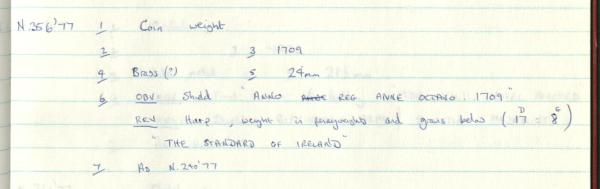 N.356'77 1 Coin weight
2 3 1709
4 Brass (?) 5 24mm
6 OBV Shield "ANNO REG ANNE OCTAVO 1709"
REV Harp, weight in pennyweights and grains below (17D 8G)
"THE STANDARD OF IRELAND"
7 As N.240'77